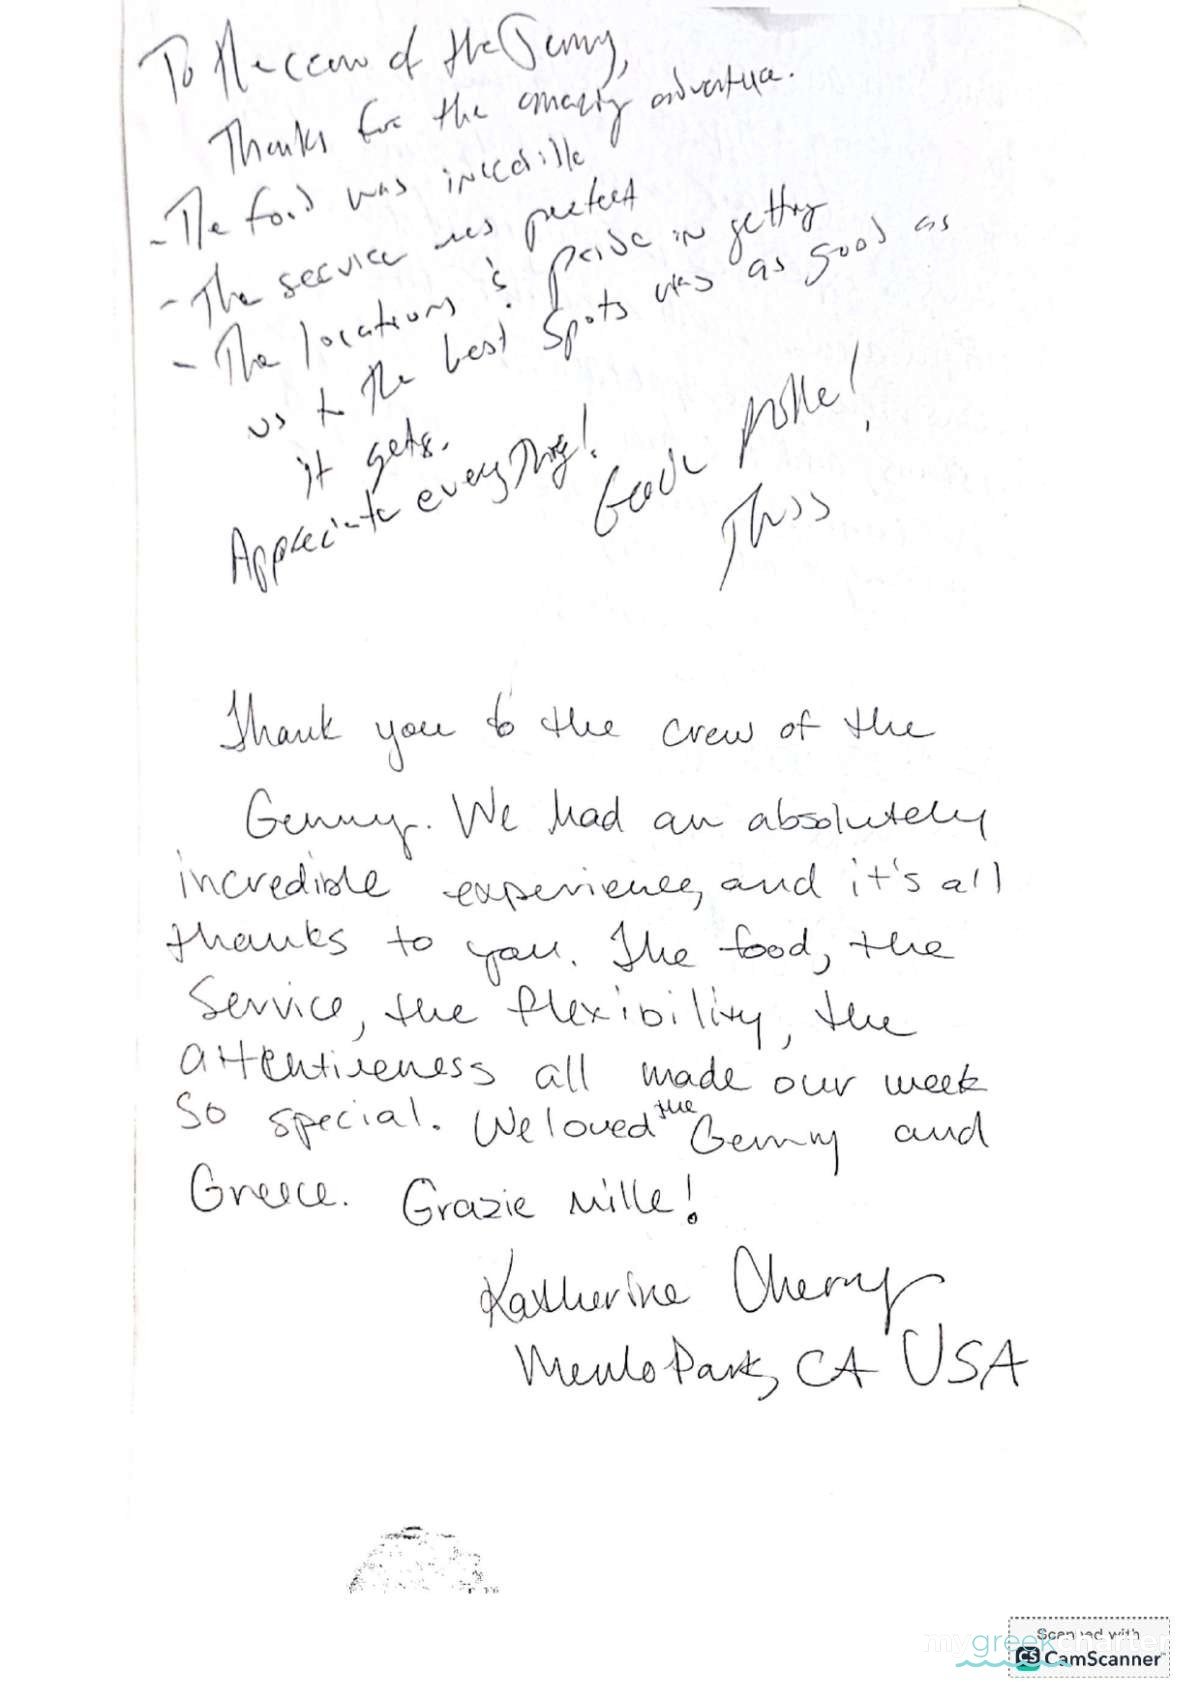 To the crew of the Jenny,
Thanks for the amazing adventure.
- The food was incredible
- The service was perfect
- The locations & pride in getting
us to the best spots was as good as
it gets.
Appreciate everything!
Mille!
Thank you to the crew of the
Genny. We had an absolutely
incredible experience, and it's all
thanks to you. The food, the
Service, the flexibility, the
attentiveness all made our week
So special. We loved the Genny and
Greece. Grazie Mille!
Katherine Cherny
Menlo Park, CA USA
Scanned with
mygreekcharter
CS CamScanner